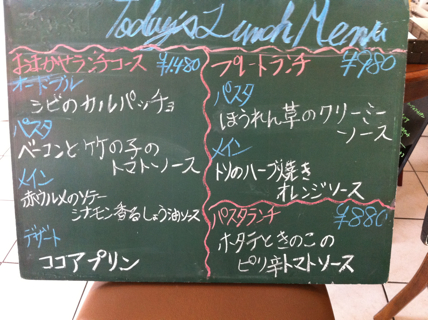 Today's Lunch Menu
おまかせランチコース ¥1,480
オードブル
シビのカルパッチョ
パスタ
ベーコンと竹の子の
トマトソース
メイン
赤ウルメのソテー
シナモン香るしょう油ソース
デザート
ココアプリン
プレートランチ ¥980
パスタ
ほうれん草のクリーミー
ソース
メイン
トリのハーブ焼き
オレンジソース
パスタランチ ¥880
ホタテときのこの
ピリ辛トマトソース